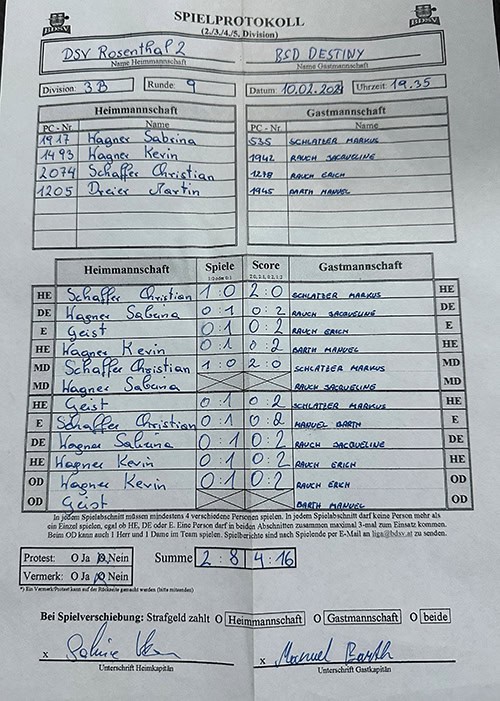 SPIELPROTOKOLL
(2./3./4./5. Division)
BDSV BDSV
DSV Rosenthal 2 BSD DESTINY
Name Heimmannschaft Name Gastmannschaft
Division: 3B Runde: 9 Datum: 10.02.2024 Uhrzeit: 19.35
Heimmannschaft Gastmannschaft
PC - Nr. Name PC - Nr. Name
1917 Wagner Sabrina 535 SCHLATZER MARKUS
1493 Wagner Kevin 1942 RAUCH JACQUELINE
2074 Schaffer Christian 1278 RAUCH ERICH
1205 Dreier Martin 1945 BARTH MANUEL
Heimmannschaft Spiele Score Gastmannschaft
1:0 oder 0:1 2:0, 2:1, 0:2, 1:2
HE Schaffer Christian 1:0 2:0 SCHLATZER MARKUS HE
DE Wagner Sabrina 0:1 0:2 RAUCH JACQUELINE DE
E Geist 0:1 0:2 RAUCH ERICH E
HE Wagner Kevin 0:1 0:2 BARTH MANUEL HE
MD Schaffer Christian 1:0 2:0 SCHLATZER MARKUS MD
MD Wagner Sabrina RAUCH JACQUELINE MD
HE Geist 0:1 0:2 SCHLATZER MARKUS HE
E Schaffer Christian 0:1 0:2 MANUEL BARTH E
DE Wagner Sabrina 0:1 0:2 RAUCH JACQUELINE DE
HE Wagner Kevin 0:1 0:2 RAUCH ERICH HE
OD Wagner Kevin 0:1 0:2 RAUCH ERICH OD
OD Geist BARTH MANUEL OD
In jedem Spielabschnitt müssen mindestens 4 verschiedene Personen spielen. In jedem Spielabschnitt darf keine Person mehr als
ein Einzel spielen, egal ob HE, DE oder E. Eine Person darf in beiden Abschnitten zusammen maximal 3-mal zum Einsatz kommen.
Beim OD kann auch 1 Herr und 1 Dame im Team spielen. Spielberichte sind nach Spielende per E-Mail an liga@bdsv.at zu senden.
Protest: O Ja O Nein Summe 2:8 4:16
Vermerk: O Ja O Nein
*) Ein Vermerk/Protest kann auf der Rückseite gemacht werden (bitte mitsenden)
Bei Spielverschiebung: Strafgeld zahlt O Heimmannschaft O Gastmannschaft O beide
x x Manuel Barth
Unterschrift Heimkapitän Unterschrift Gastkapitän